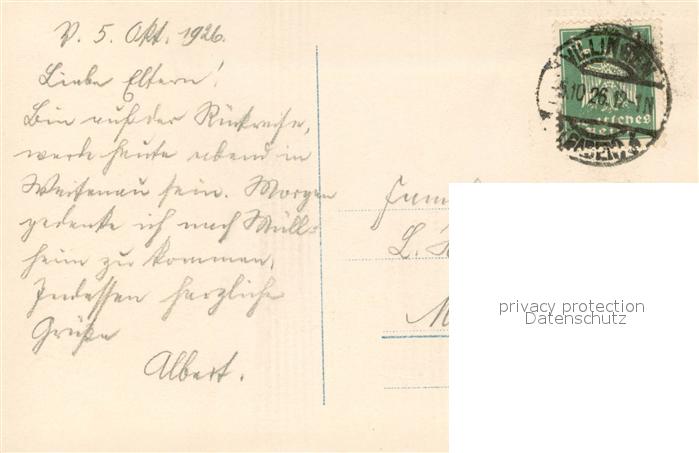 V. 5. Okt. 1926.
Liebe Eltern!
Bin auf der Rückreise,
werde heute abend in
Weitenau sein. Morgen
gedenke ich nach Müll=
heim zu kommen.
Indessen herzliche
Grüße
Albert.
VILLINGEN
5.10.26. 12-1N
(BADEN)
Deutsches
Reich
Fam
L.
M
privacy protection
Datenschutz